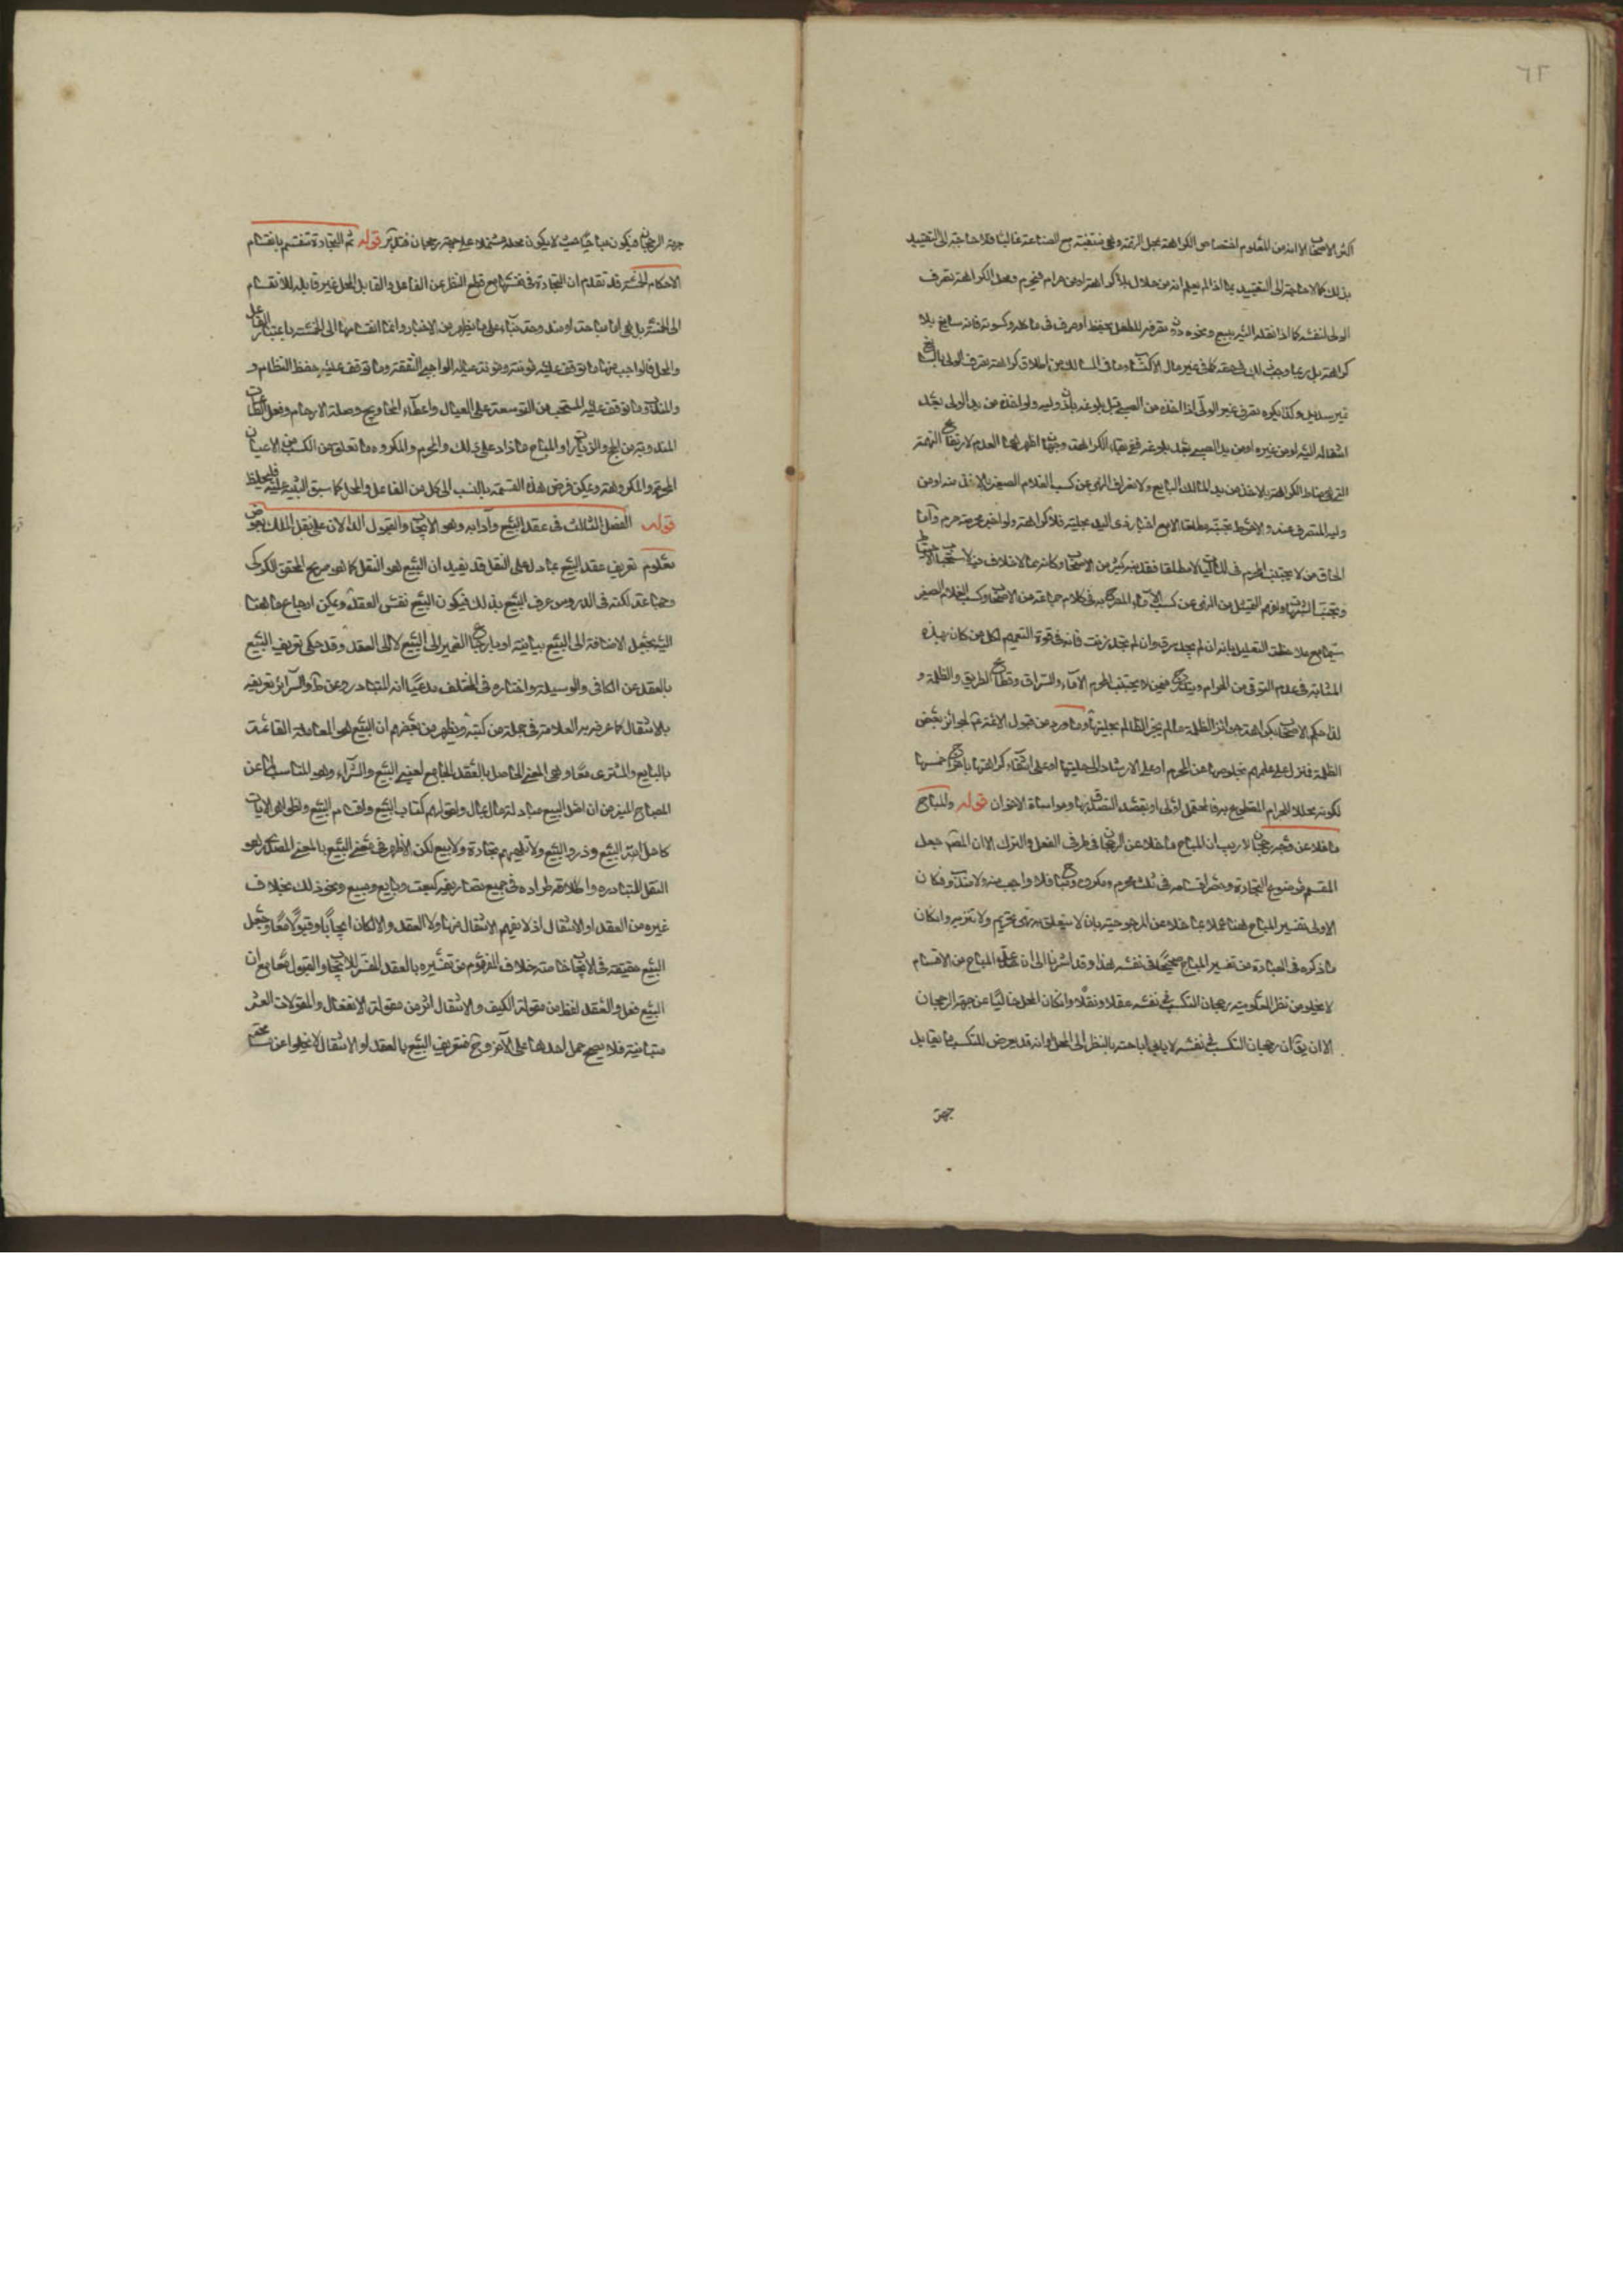 ٦٢
اكثر الاصحاب الا انه من المعلوم اختصاص الكراهة بجل الرتمة وهي منتفية مع الصناعة غالبا فلا حاجة الى التقييد
بذلك كما لا حاجة الى التقييد بما اذا لم يعلم انه من حلال بلا كراهة او من حرام فيحرم ومحل الكراهة تصرف
الولى لنفسه كما اذا نقله اليه ببيع ونحوه دون تصرفه للطفل بحفظ او صرف في مأكله وكسوته فانه سايغ بلا
كراهة بل ربما وجب ذلك في حقه كما في غير مال الاكتساب وما في المسالك من اطلاق كراهة تصرف الولى بالتكسب
غير سديد وكذا يكره تصرف غير الولى اذا اخذه من الصبي قبل بلوغه باذن وليه ولو اخذه من يد الولى بعد
انتقاله اليه او من غيره او من يد الصبي بعد بلوغه ففي بقاء الكراهة وجهان اظهرهما العدم لارتفاع التهمة
التي هي مناط الكراهة بالاخذ من يد المالك البايع ولانصراف النهى عن كسب الغلام الصغير الى الاخذ منه او من
وليه المتصرف عنه والاحوط تجنبه مطلقا الا مع اخبار ذى اليد بحليته فلا كراهة ولو اخبر بحرمته حرم واما
الحاق من لا يجتنب المحرم في ذلك مطلقا فقد ذكره كثير من الاصحاب وكانه مما لا خلاف فيه لاستحباب الاحتياط
وتجنب الشبهات وفهم التمثيل من النهى عن كسب الاماء المصرح به في كلام جماعة من الاصحاب وكسب الغلام الصغير
سيما مع ملاحظة التعليل بانه ان لم يجد سرق وان لم تجد زنت فانه في قوة التعميم لكل من كان بهذه
المثابة في عدم التوقى من الحرام ويندرج فيمن لا يجتنب المحرم الاماء والسراق وقطاع الطريق والظلمة و
لذا حكم الاصحاب بكراهة جوائز الظلمة ما لم يخبر الظالم بحليتها وما ورد من قبول الائمة لجوائز بعض
الظلمة فنزل على علمهم بخلوصها عن المحرم او على الارشاد الى حليتها او على انتفاء كراهتها باخراج خمسها
لكونه محللا للحرام المقطوع به فالمحتمل اولى او بقصد التصدق بها ومواساة الاخوان قوله والمباح
ما خلا عن وجه رجحان لا ريب ان المباح ما خلا عن الرجحان في طرفى الفعل والترك الا ان المصنف جعل
المقسم موضوع التجارة وحصر اقسامه في ثلث محرم ومكروه ومباح فلا واجب منه ولا مندوب فكان
الاولى تفسير المباح هنا بما خلا عن المرجوحية بان لا يتعلق به نهى تحريم ولا تنزيه وان كان
ما ذكره في العبارة من تفسير المباح صحيحا في نفسه هذا وقد اشرنا الى ان عد المباح من الاقسام
لا يخلو من نظر لمعلومية رجحان التكسب في نفسه عقلا ونقلا وان كان المحل خاليا عن جهة الرجحان
الا ان يقال ان رجحان التكسب في نفسه لا ينافى اباحته بالنظر الى المحل او انه قد يعرض للتكسب ما يقابل
جهة
جهة الرجحان فيكون مباحا حيث لا يكون محله مشتملا على جهة رجحان فتدبر قوله ثم التجارة تنقسم بانقسام
الاحكام الخمسة قد تقدم ان التجارة في نفسها مع قطع النظر عن الفاعل والقابل المحل غير قابله للانقسام
الى الخمسة بل هي اما مباحة او مندوحة بناء على ما يظهر من الاخبار وانما انقسامها الى الخمسة باعتبار الفاعل
والمحل فالواجب منها ما توقف عليه مؤنته ومؤنة عياله الواجبى النفقة وما توقف عليه حفظ النظام و
والمندوب ما توقف عليه المستحب من التوسعة على العيال واعطاء المحاويج وصلة الارحام وفعل الطاعات
المندوبة من الحج والزيارات والمباح ما زاد على ذلك والمحرم والمكروه ما تعلق من الكسب من الاعيان
المحرمة والمكروهة ويمكن فرض هذه القسمة بالنسب الى كل من الفاعل والمحل كما سبق التنبيه عليه فليلحظ
قوله الفصل الثالث في عقد البيع وآدابه وهو الايجاب والقبول الدالان على نقل الملك بعوض
معلوم تعريف عقد البيع بما دل على النقل قد يفيد ان البيع هو النقل كما هو صريح المحقق الكركى
وجماعة لكنه في الدروس عرف البيع بذلك فيكون البيع نفس العقد ويمكن ارجاع ما هنا
اليه بجعل الاضافة الى البيع بيانية او بارجاع الضمير الى البيع لا الى العقد وقد حكى تعريف البيع
بالعقد عن الكافى والوسيلة واختاره في المختلف مدعيا انه المتبادر وعن ط والسرائر تعريفه
بالانتقال كما عرفه به العلامة في جملة من كتبه ويظهر من بعضهم ان البيع هو المعاملة القائمة
بالبايع والمشترى معا وهى المعنى الحاصل بالعقد الجامع لمعنى البيع والشراء وهو المناسب لما عن
المصباح المنير من ان اصل البيع مبادلة مال بمال ولقولهم كتاب البيع واقسام البيع ولظواهر الايات
كاحل الله البيع وذروا البيع ولا تلهيهم تجارة ولا بيع لكن الاظهر في معنى البيع بالمعنى المصدرى هو
النقل لتبادره واطلاقه اطراده في جميع تصاريفه كبعت وبايع ومبيع ونحو ذلك بخلاف
غيره من العقد او الانتقال اذ لا يفهم الانتقال منها ولا العقد والا لكان ايجابا وقبولا معا وجعل
البيع حقيقة في الايجاب خاصة خلاف المفهوم من تفسيره بالعقد المفسر للايجاب والقبول معا مع ان
البيع فعل والعقد لفظ من مقولة الكيف والانتقال اثر من مقولة الانفعال والمقولات العشر
متباينة فلا يصح حمل احدها على الاخر وح فتعريف البيع بالعقد او الانتقال لا يخلوا عن مسامحة